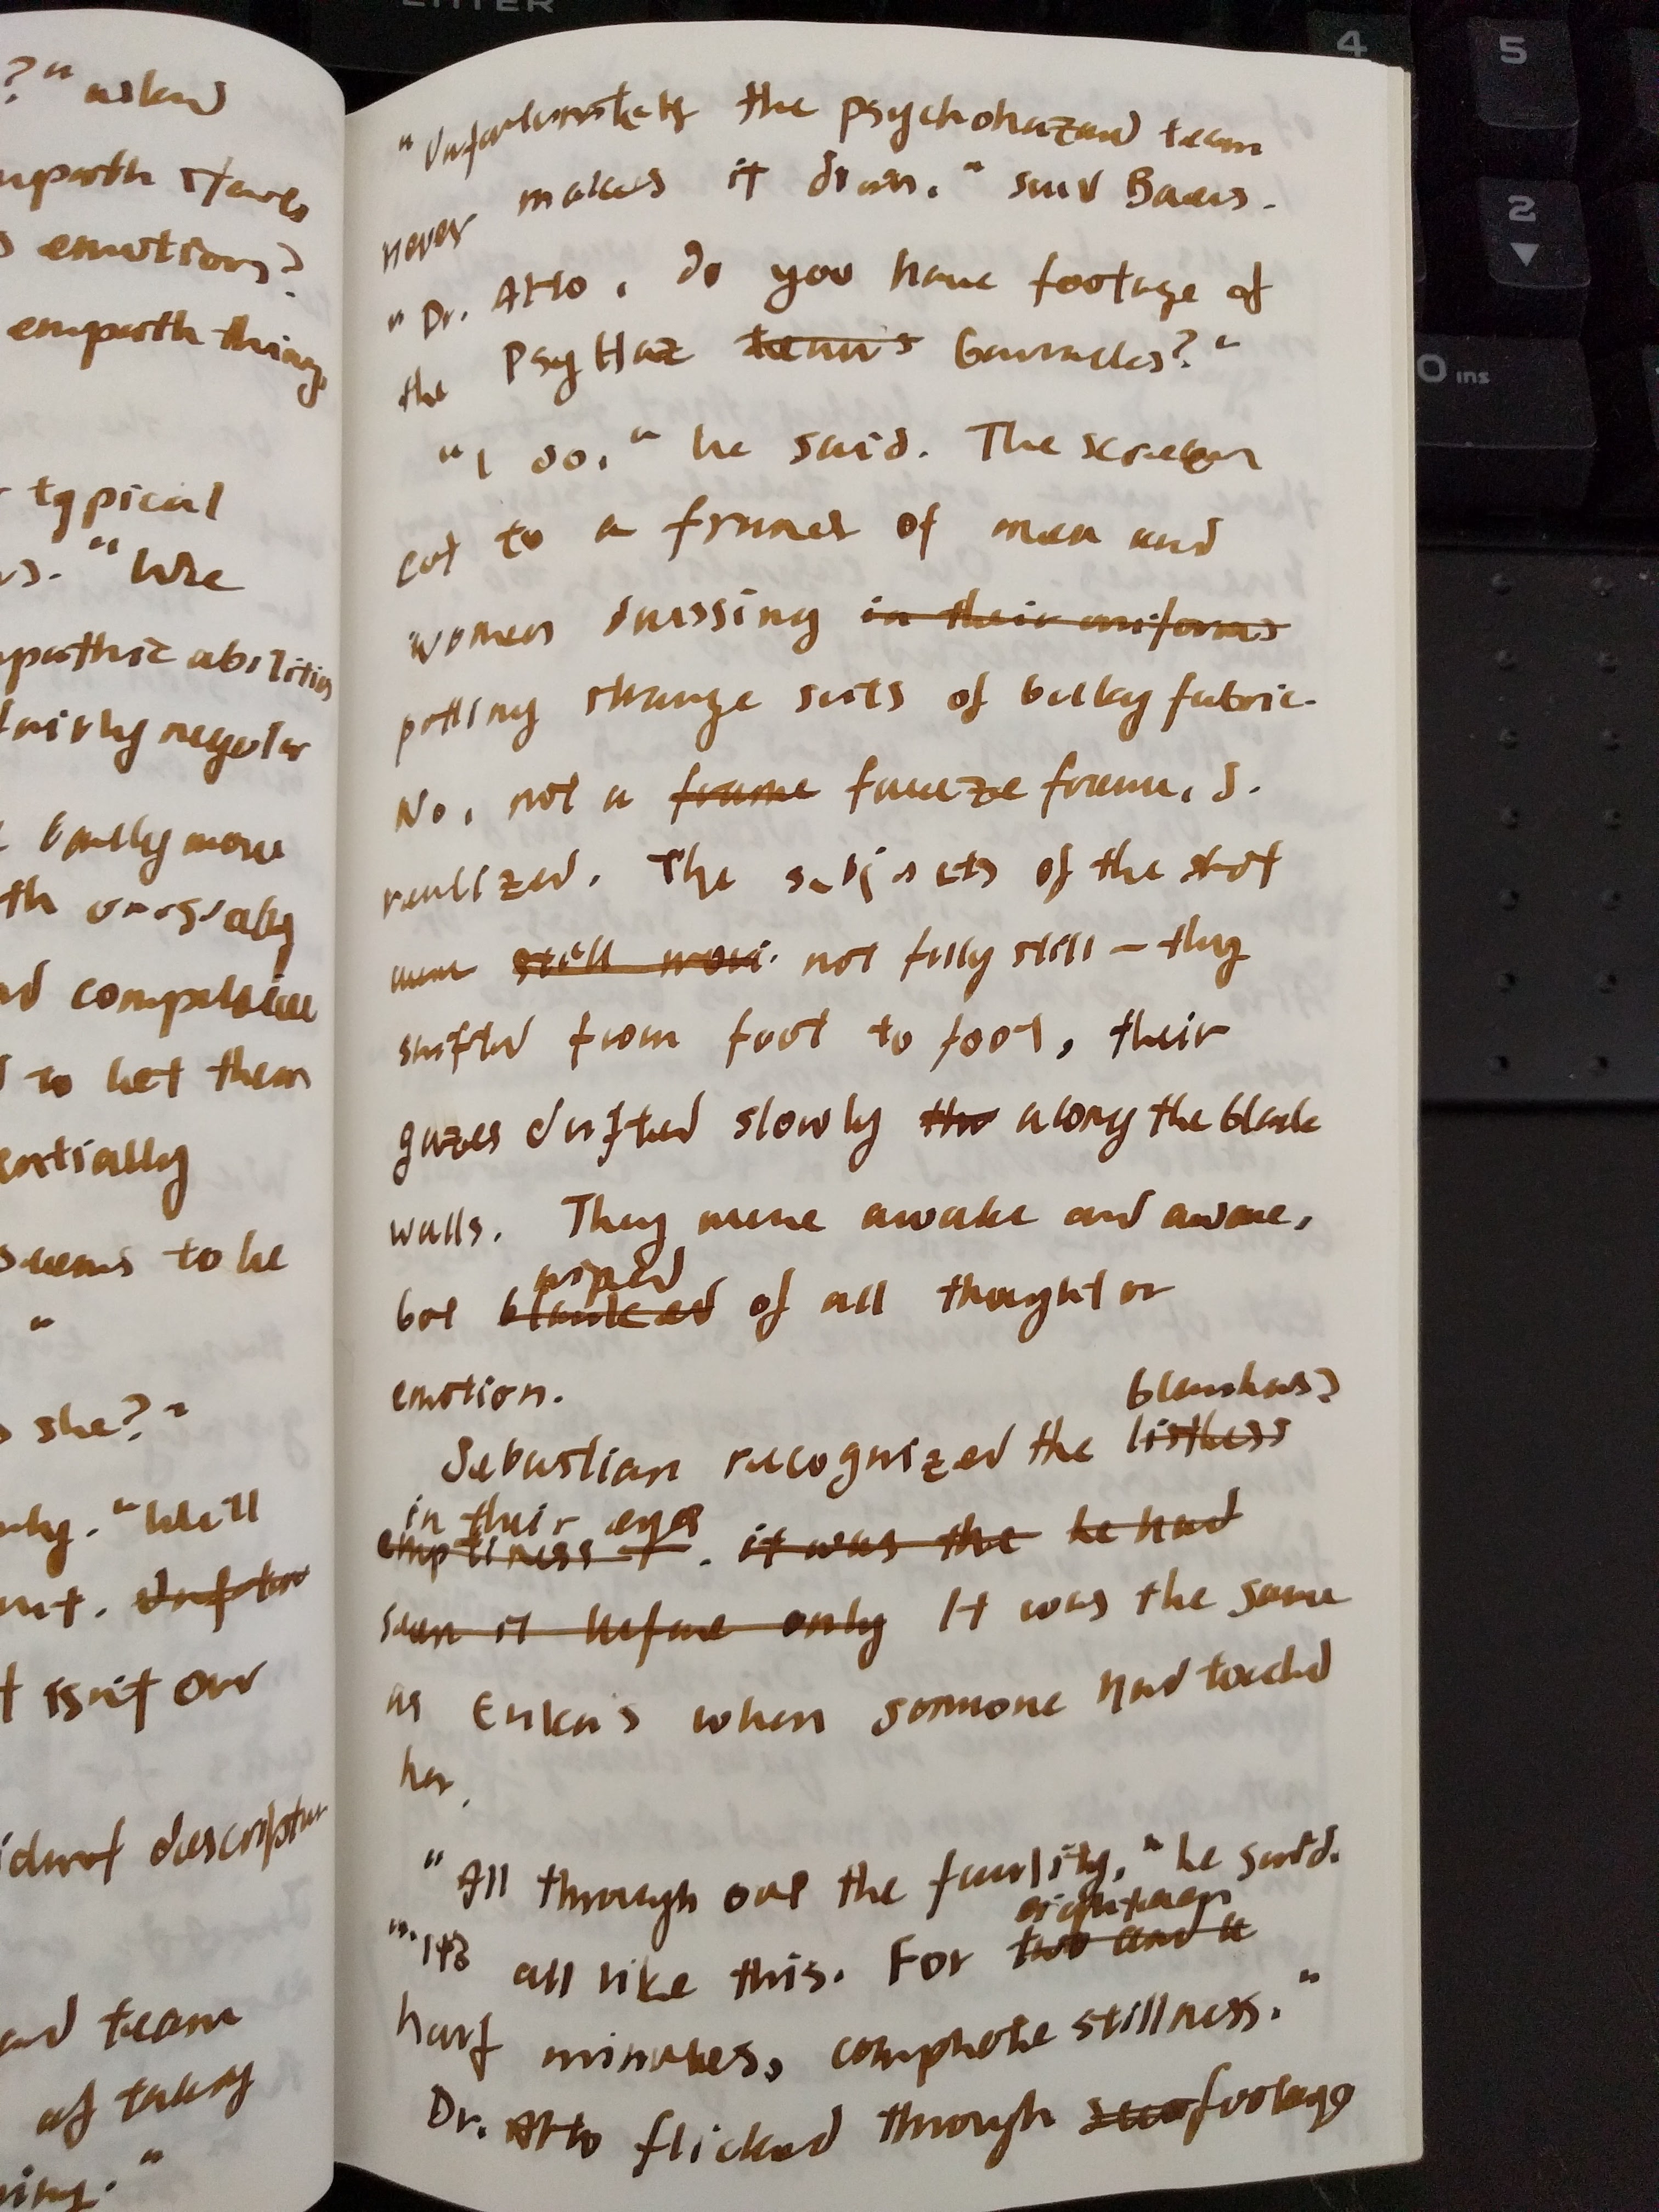 ?" asked
empath stares
s emotions?
empath things
typical
"We
empathic abilities
fairly regular
really more
th unusually
compulsive
to let them
entially
seems to be
"
s she?"
"We'll
Unfortu
isn't our
descriptor
team
of taking
"
"Unfortunately the psychohazard team
never makes it down." said Baers.
"Dr. Atto, do you have footage of
the PsyHaz team's barracks?"
"I do," he said. The screen
cut to a frame of men and
women dressing in their uniforms
putting strange suits of bulky fabric.
No, not a frame freeze frame, S.
realized. The subjects of the shot
were still movi not fully still — they
shifted from foot to foot, their
gazes drifted slowly the along the blank
walls. They were awake and aware,
wiped
but blanked of all thought or
emotion.
blankness
Sebastian recognized the listless
in their eyes
emptiness. it was the he had
seen it before only It was the same
as Erika's when someone had touched
her.
"All through out the facility," he said.
eighteen
"It's all like this. For two and a
half minutes, complete stillness."
Dr. Atto flicked through footage
ENTER
4
5
2
▼
0 ins